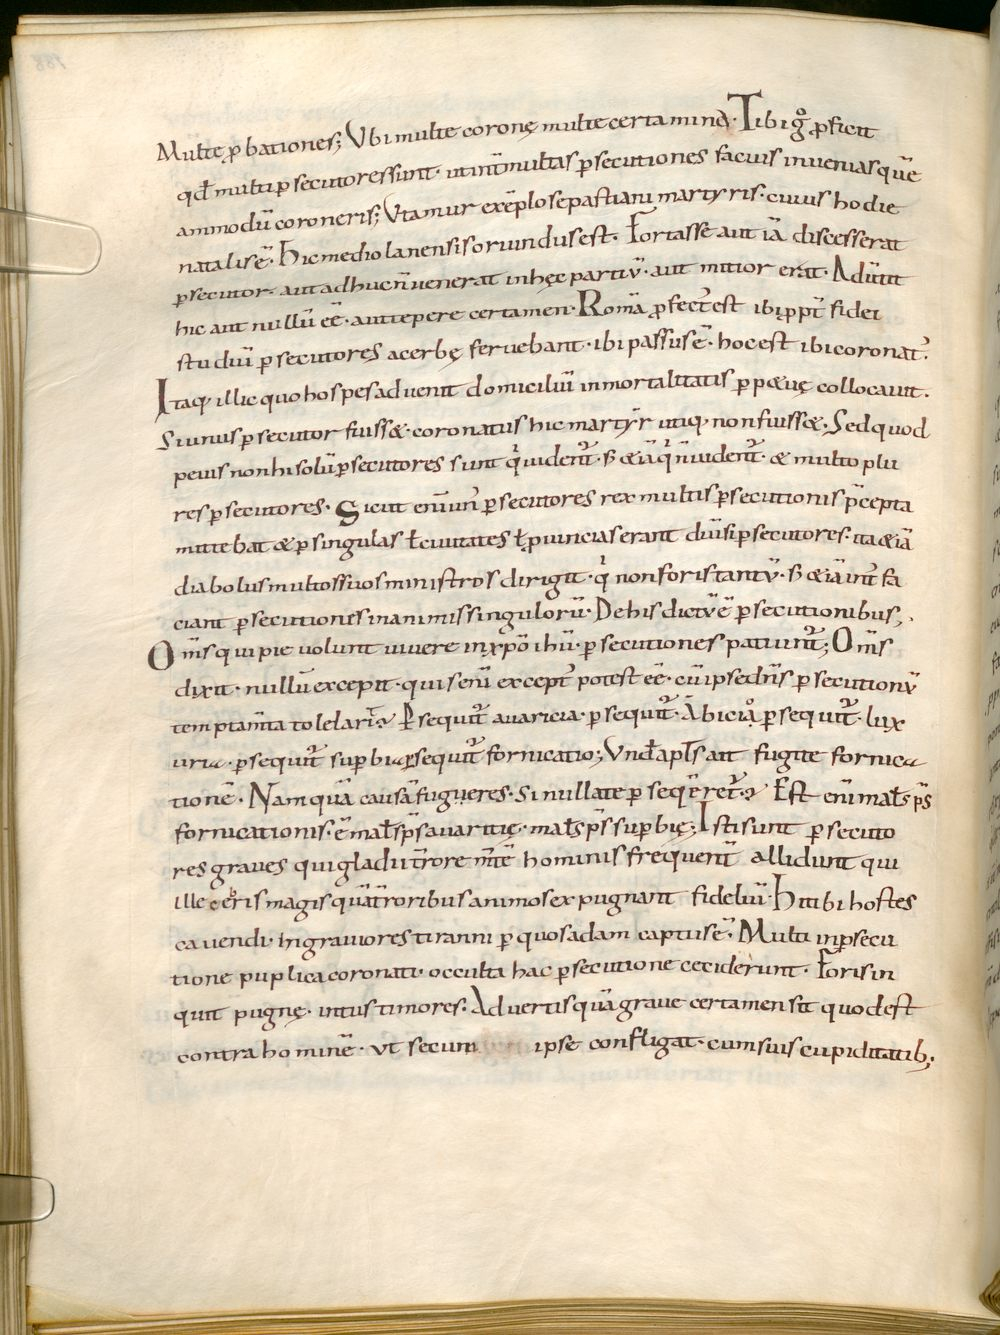 Multę ꝓbationes; Ubi multe coronę multe certamina. Tibi gͦ ꝓficit
qd̄ multi ꝑsecutores sunt. ut int̄ multas ꝑsecutiones facius inuenias quē
ammodū coroneris; Utamur exēplo sepastiani martyris. cuius hodie
natalis ē. Hic mediolanensis oriundus est. Fortasse aut iā discesserat
ꝑsecutor. aut adhuc ñ uenerat in hęc partiū. aut mitior erat. Aduertit
hic aut nullū eē. aut tepere certamen. Romā ꝓfect᷒ est ibi ꝓpt̄ fidei
studiū ꝑsecutores acerbę feruebant. ibi passus ē. hoc est ibi coronat᷒.
Itaq; illic quo hospes aduenit domiciliū inmortalitatis ꝑpetuę collocauit.
Si unus ꝑsecutor fuisset. coronatus hic martyr̄ utiq; non fuisset. Sed quod
peius non hi solū ꝑsecutores sunt qͥ uident᷒. s; & iā qͥ ñ uident᷒. & multo plu
res ꝑsecutores. Sicut enī un᷒ ꝑsecutores rex multis ꝑsecutionis p̄cepta
mittebat & ꝑ singulas ł ciuitates ł ꝓuincias erant diuīsi ꝑsecutores. ita & iā
diabolus multos suos ministros dirigit. qͥ non foris tantū. s; & iā int᷒ fa
ciant ꝑsecutiones in animis singulorū. De his dictū ē ꝑsecutionibus,.
Om̄s qui pie uolunt uiuere in xp̄o ih̄u. ꝑsecutiones patiunt᷒; Om̄s
dixit. nullū excepit. quis enī except᷒ potest eē. cū ipse dn̄s ꝑsecutionū
temptam̄ta tolelarit; Ꝑsequit᷒ auaricia. ꝑsequit᷒. Ambiciͦ. ꝑsequit᷒. lux
uria. ꝑsequit᷒ suꝑbia. ꝑsequit᷒ fornicatio; Und̄ apl̄s ait fugite fornica
tionē. Nam quā causā fugueres. si nulla te ꝑseq̄ret᷒.; Est enī mal᷒ sp̄s
fornicationis. ē mal᷒ sp̄s auaritię. mal᷒ sp̄s suꝑbię; Isti sunt ꝑsecuto
res graues qui gladii t̄rore m̄tē hominis frequent̄ allidunt qui
illecebris magis quā t̄roribus animos expugnant fidelīū. Hi tibi hostes
cauendi. hi grauiores tiranni ꝑ quos adam captus ē. Multi in ꝑsecu
tione puplica coronati. occulta hac ꝑsecutione ceciderunt. Foris in
quit pugnę. intus timores. Aduertis quā graue certamen sit quod est
contra hominē. ut secum ipse confligat. cum suis cupiditatib;